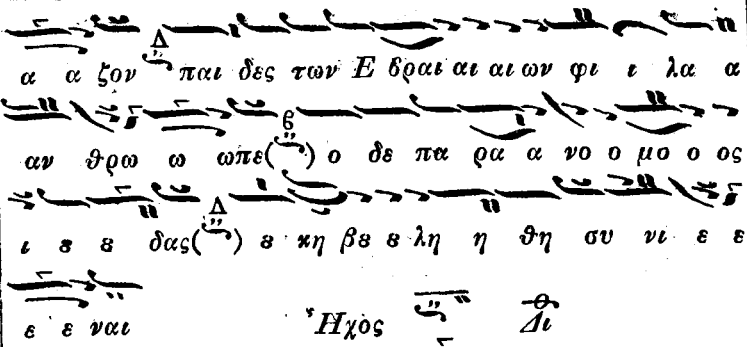 α α ζον παι δες των Ε βραι αι αι ων φι ι λα α
αν θρω ω ωπε( ) ο δε πα ρα α νο ο μο ο ος
ι ȣ ȣ δας( ) ȣ κη βȣ ȣ λη η θη συ νι ε ε
ε ε ναι Ἦχὸς Δι